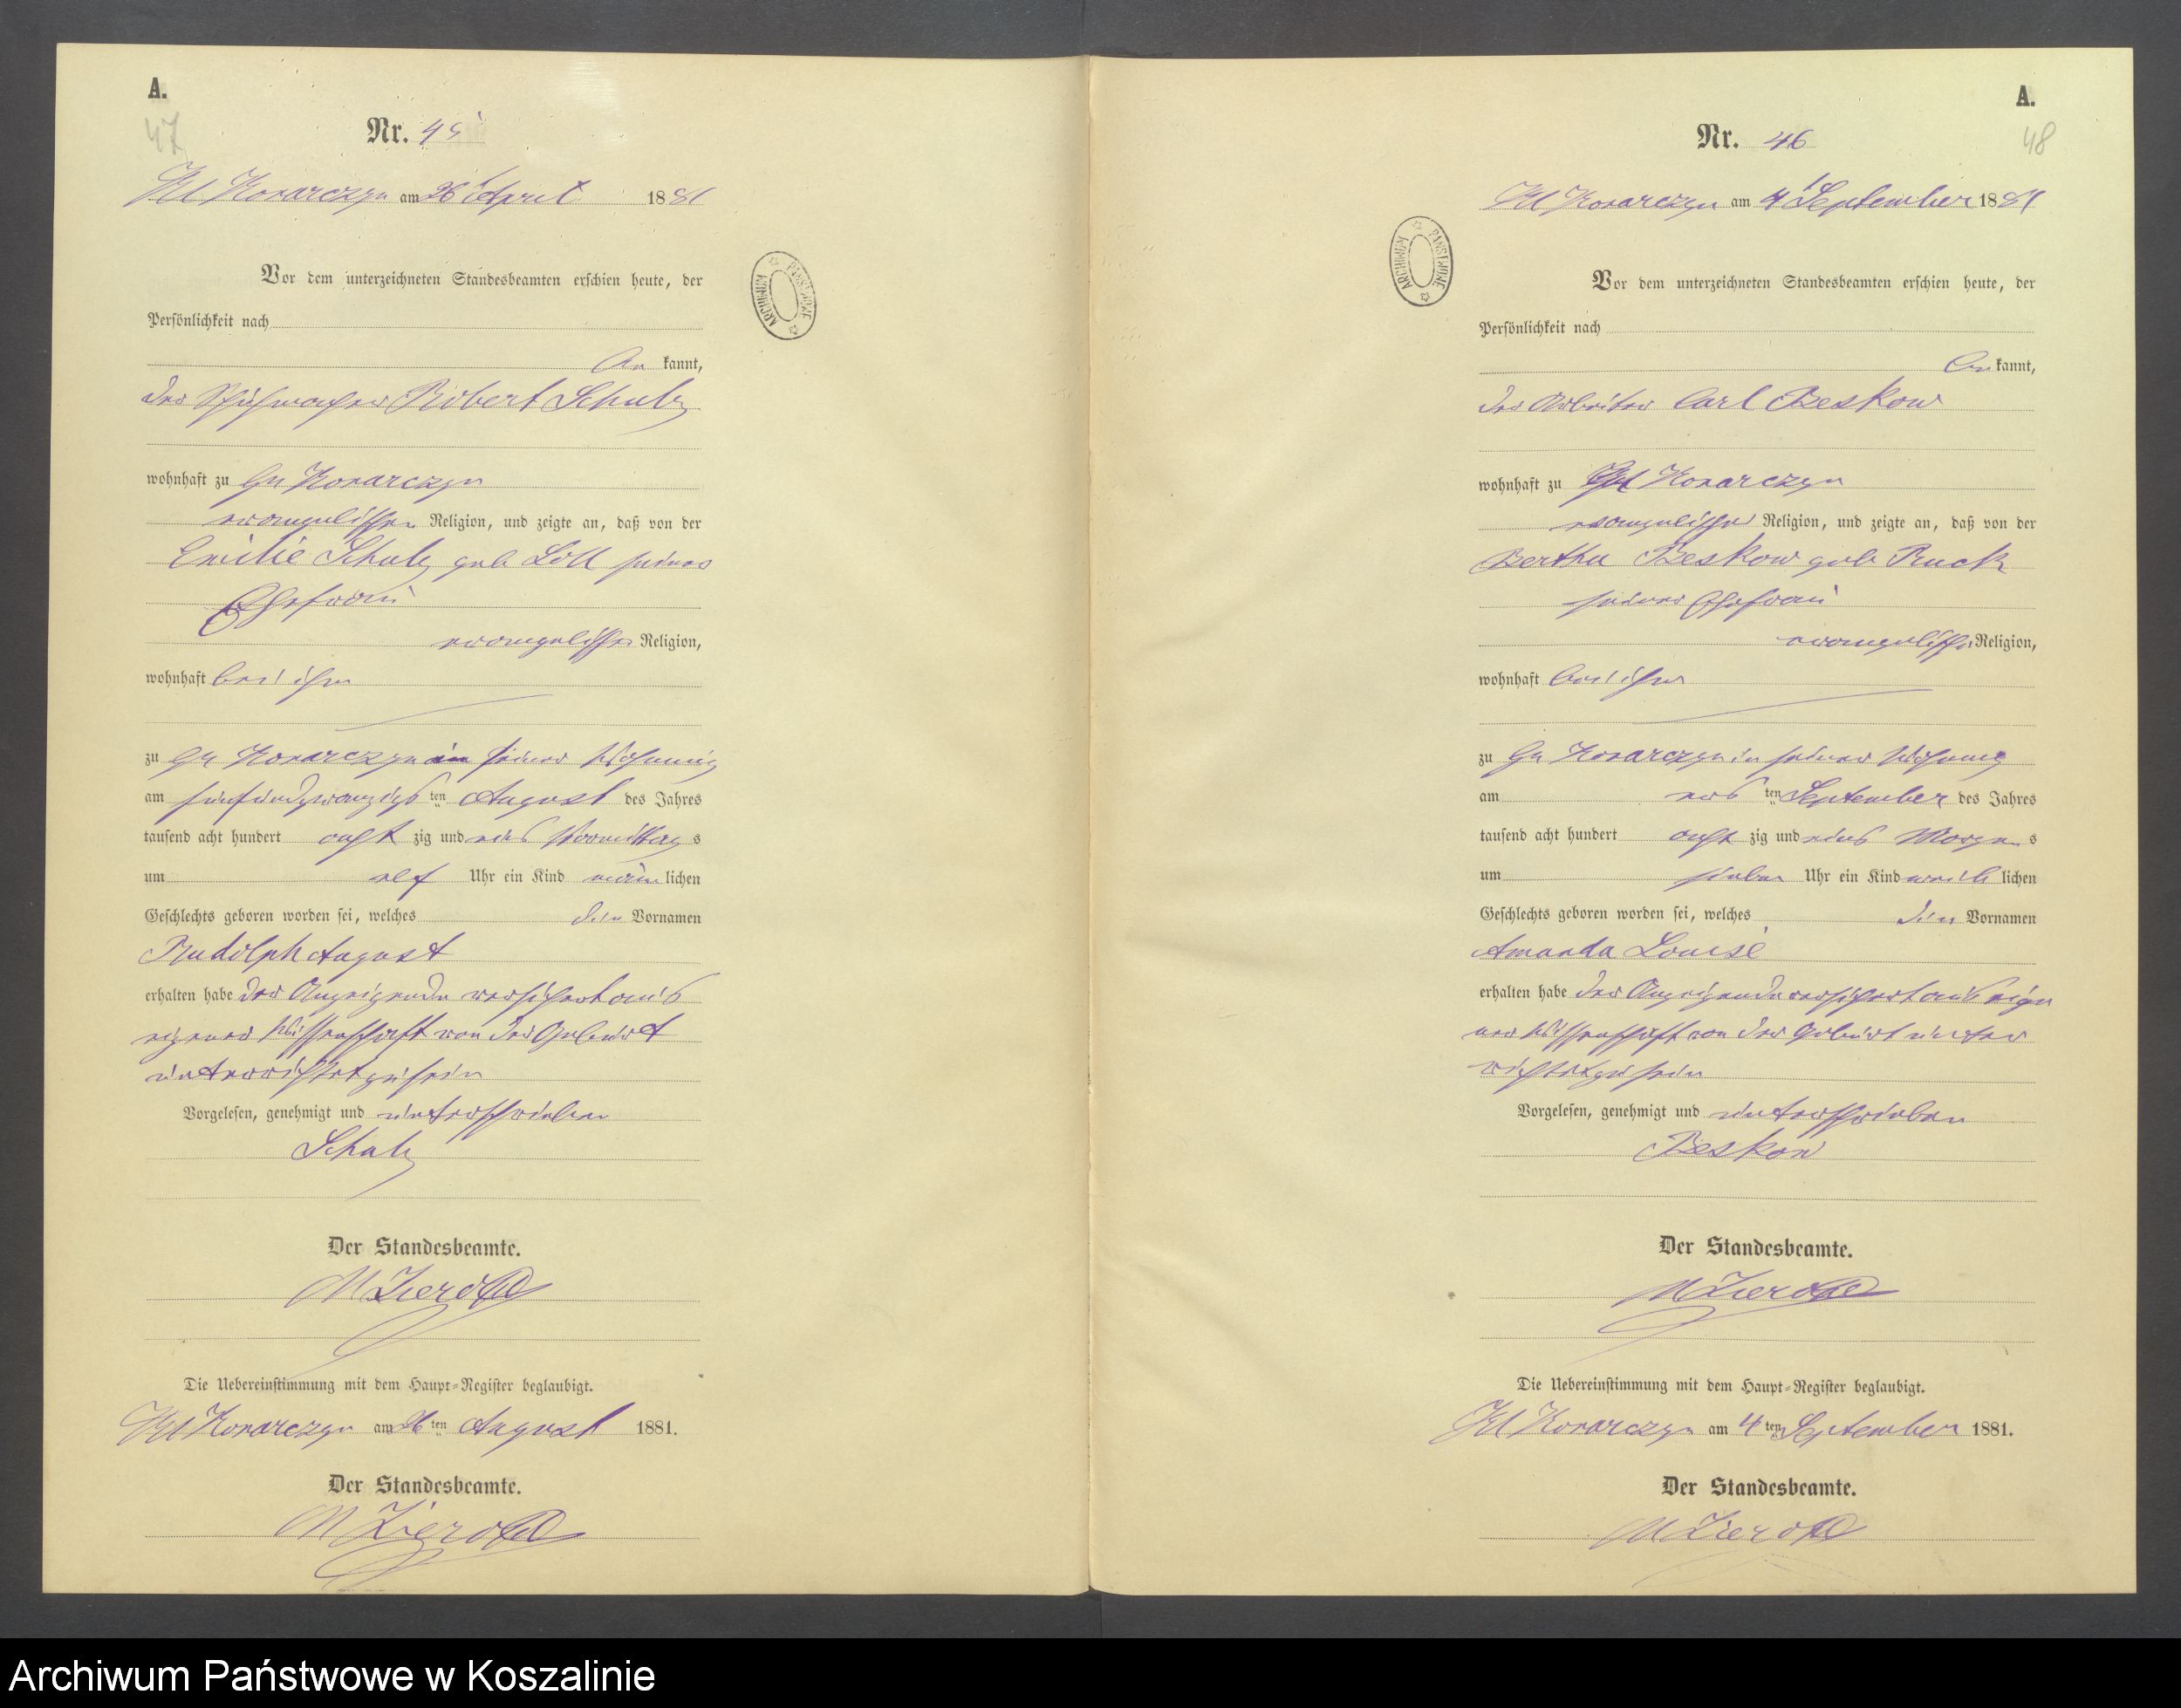 A.
47
Nr. 45
Kl Konarczyn am 26 April 1881
Vor dem unterzeichneten Standesbeamten erschien heute, der
Persönlichkeit nach
be kannt,
der Robert Schulz
wohnhaft zu Gr Konarczyn
evangelischer Religion, und zeigte an, daß von der
Emilie Schulz geb Löll seiner
Ehefrau
evangelischer Religion,
wohnhaft bei ihm
zu Gr Konarczyn in seiner Wohnung
am fünfundzwanzigs ten August des Jahres
tausend acht hundert acht zig und eins Vormittag s
um elf Uhr ein Kind männ lichen
Geschlechts geboren worden sei, welches den Vornamen
Rudolph August
erhalten habe der Anzeigende versichert aus
eigener Wissenschaft von der Geburt
unterrichtet zu sein
Vorgelesen, genehmigt und unterschrieben
Schulz
Der Standesbeamte.
Die Uebereinstimmung mit dem Haupt-Register beglaubigt.
Kl Konarczyn am 26 ten August 1881.
Der Standesbeamte.
ARCHIWUM PAŃSTWOWE
A.
48
Nr. 46
Kl Konarczyn am 4 September 1881
Vor dem unterzeichneten Standesbeamten erschien heute, der
Persönlichkeit nach
be kannt,
der Arbeiter Carl Beskow
wohnhaft zu Konarczyn
evangelischer Religion, und zeigte an, daß von der
Bertha Beskow geb Ruck
seiner Ehefrau
evangelischer Religion,
wohnhaft bei ihm
zu Gr Konarczyn in seiner Wohnung
am ers ten September des Jahres
tausend acht hundert acht zig und eins Morgen s
um sieben Uhr ein Kind weib lichen
Geschlechts geboren worden sei, welches den Vornamen
Amanda Louise
erhalten habe der Anzeigende versichert aus eige
ner Wissenschaft von der Geburt unter
richtet zu sein
Vorgelesen, genehmigt und unterschrieben
Beskow
Der Standesbeamte.
Die Uebereinstimmung mit dem Haupt-Register beglaubigt.
Kl Konarczyn am 4 ten September 1881.
Der Standesbeamte.
ARCHIWUM PAŃSTWOWE
Archiwum Państwowe w Koszalinie